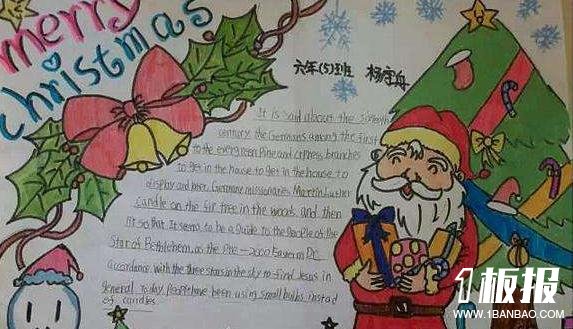 merry
christmas
六年(5)班
It is said about the sixteenth
century, the Germans among the first
to the evergreen Pine and cypress branches
to get in the house to get in the house to
display and later, Germane missionaries Martin Luther
candle on the fir tree in the woods and then
lit so that It seems to be a Guide to the people of the
Star of Bethlehem, as the Pre-2000 Eastern Dr.
accordance with the three stars in the sky to find Jesus in
general Today, People have been using small bulbs instead
of candles.
1板报
WWW.1BANBAO.COM